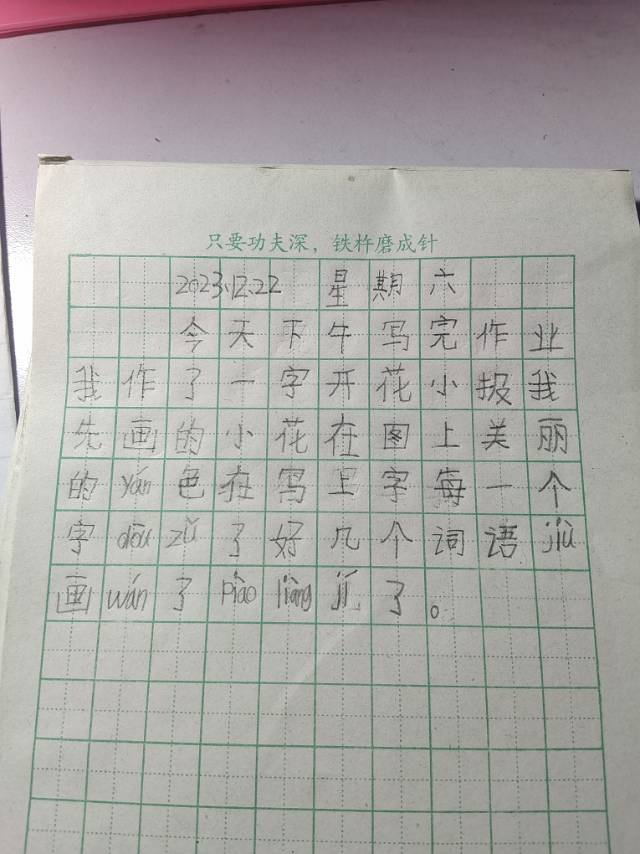 只要功夫深，铁杵磨成针
2023.12.22 星期六
今天下午写完作业
我作了一字开花小报我
先画的小花在图上美丽
的yán色在写上字每一个
字dōu zǔ了好几个词语jiù
画wán了piào liàng jí了。